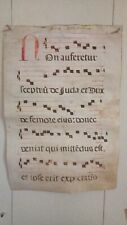 Non auferetur
sceptrũ de Juda et Dux
de femore eius: donec
veniat qui mittẽdus est.
et ipse erit expectatio